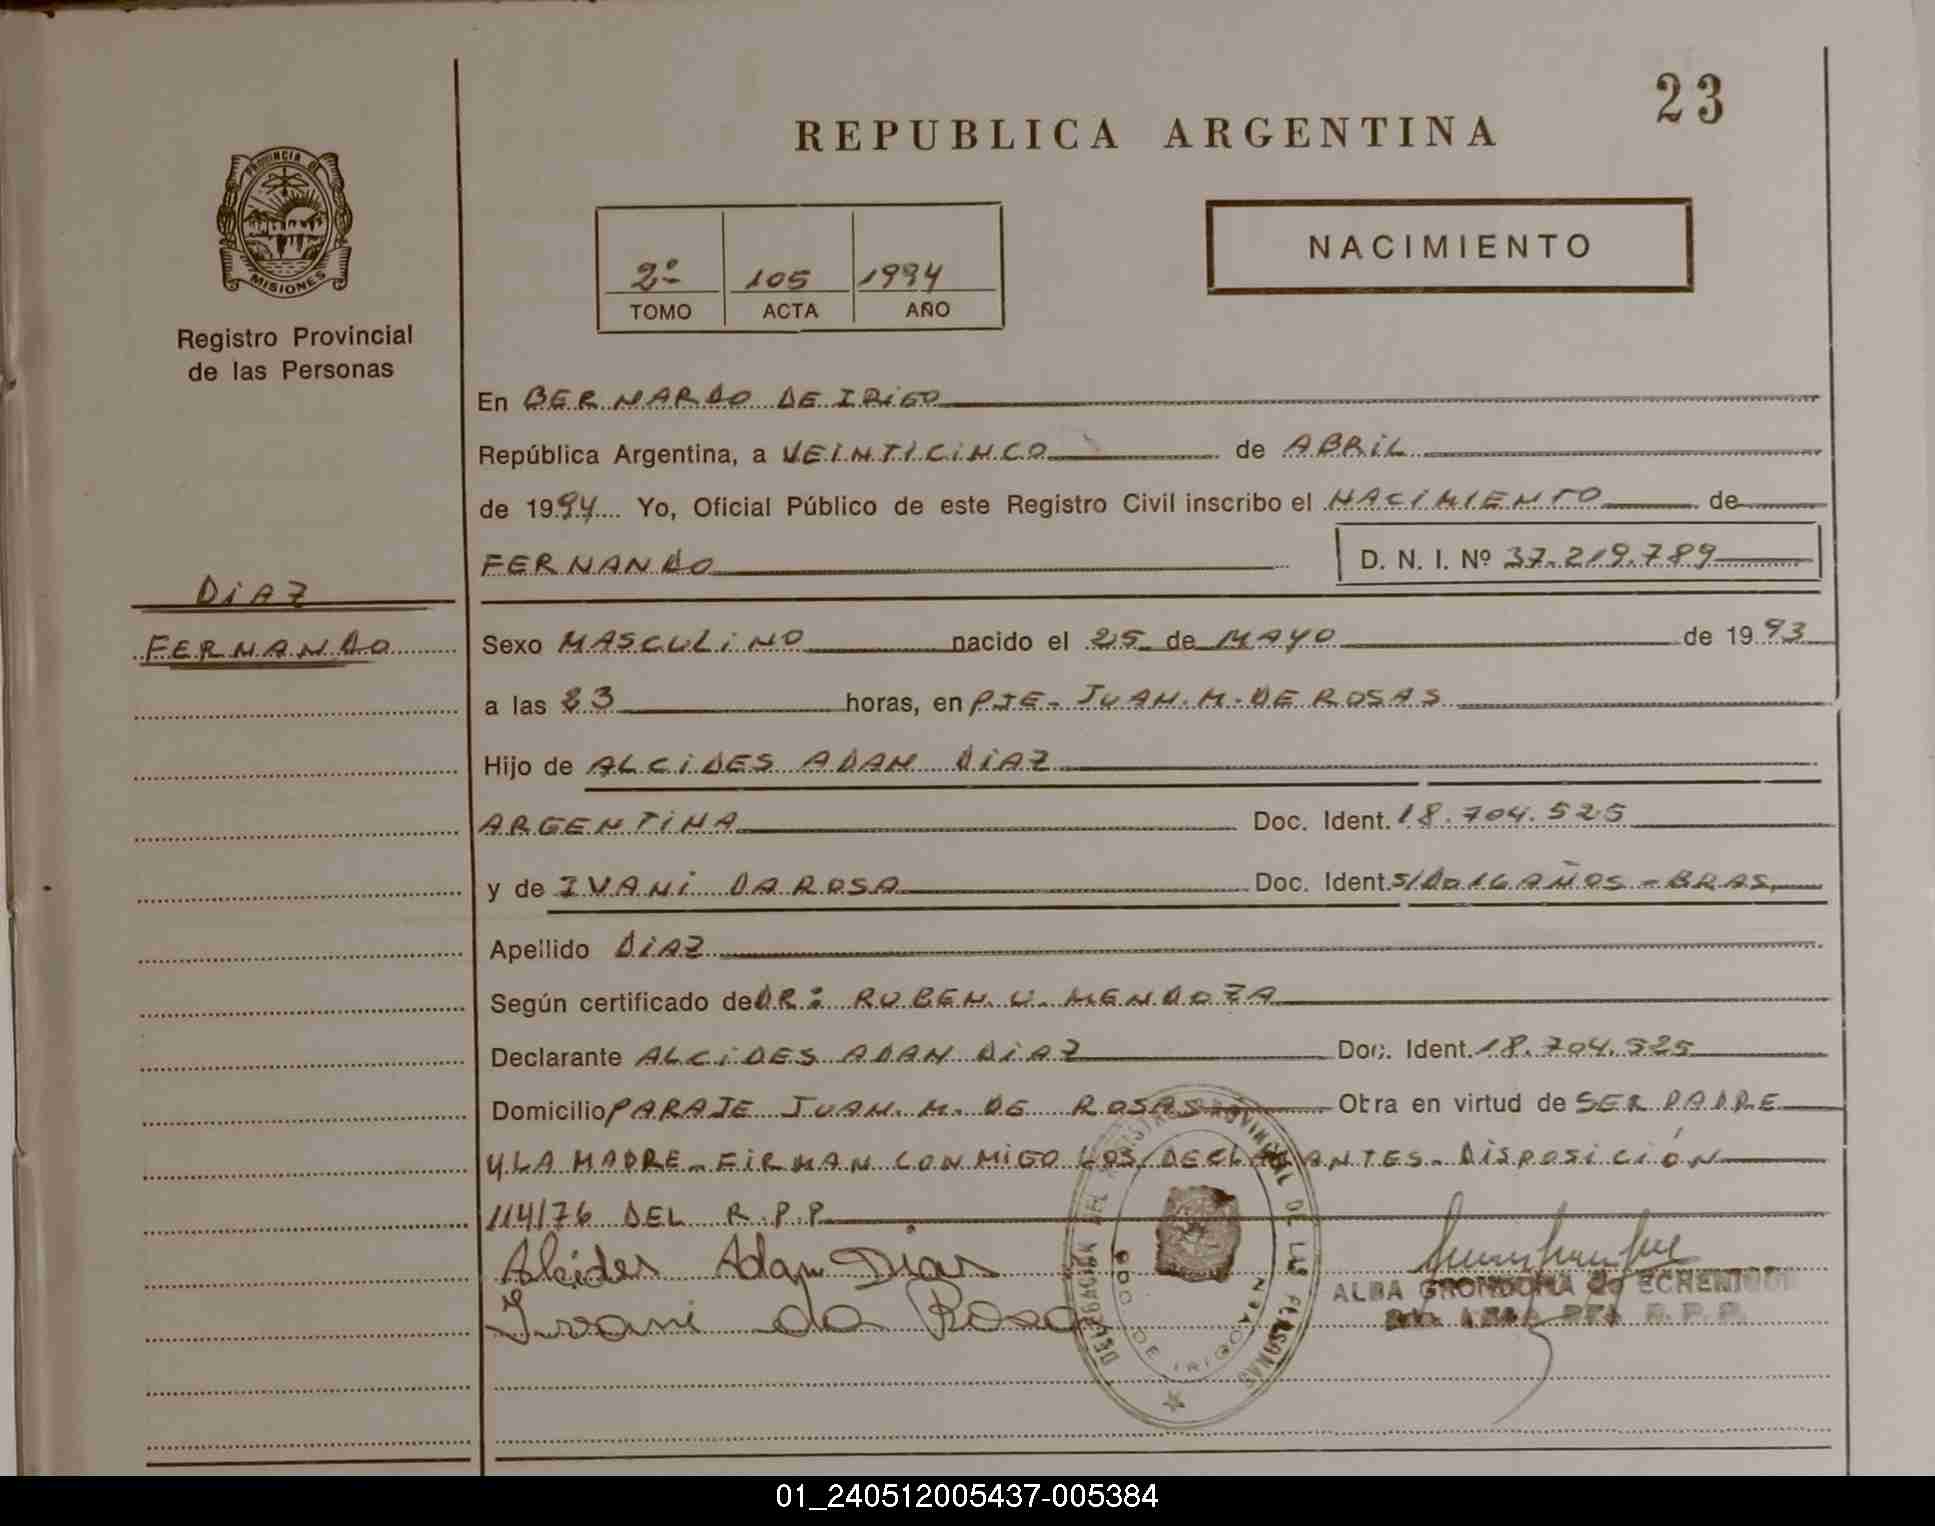 23
REPUBLICA ARGENTINA
PROVINCIA DE
MISIONES
Registro Provincial
de las Personas
2º 105 1994
TOMO ACTA AÑO
NACIMIENTO
En BERNARDO DE IRIGO
República Argentina, a VEINTICINCO de ABRIL
de 1994 Yo, Oficial Público de este Registro Civil inscribo el NACIMIENTO de
FERNANDO D. N. I. Nº 37.219.789
DIAZ
FERNANDO
Sexo MASCULINO nacido el 25 de MAYO de 1993
a las 23 horas, en PJE- JUAN.M.DE ROSAS
Hijo de ALCIDES ADAN DIAZ
ARGENTINA Doc. Ident. 18.704.525
y de IVANI DA ROSA Doc. Ident. S/Do 16 AÑOS - BRAS.
Apellido DIAZ
Según certificado de DR: RUBEN U. MENDOZA
Declarante ALCIDES ADAN DIAZ Doc. Ident. 18.704.525
Domicilio PARAJE JUAN. M. DE ROSAS Obra en virtud de SER PADRE
Y LA MADRE- FIRMAN CONMIGO LOS DECLARANTES- DISPOSICIÓN
114/76 DEL R.P.P
Alcides Adam Dias
Ivani da Rosa
DELEGACION DEL REGISTRO PROVINCIAL DE LAS PERSONAS
BDO DE IRIGOYEN
ALBA GRONDONA de ECHENIQUE
R.P.P.
01_240512005437-005384